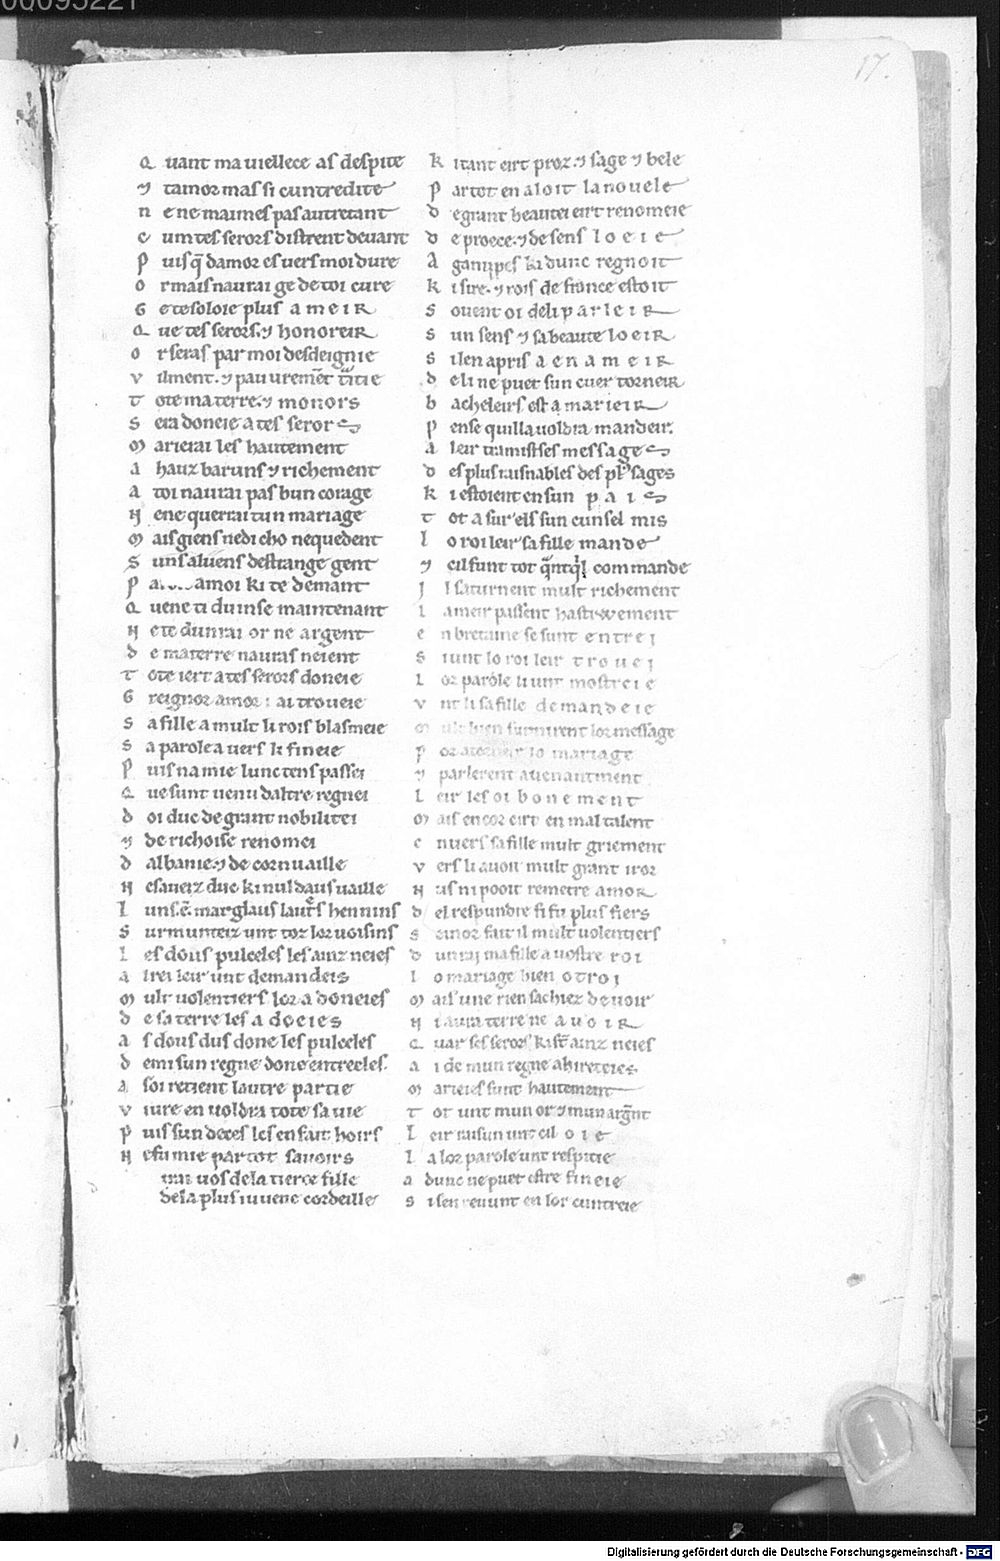 00095221
17.
Quant ma viellece as despite
⁊ tamor mas si cuntredite
ne ne maimes pas autretant
cum tes serors distrent devant
Puis q̃ damor es vers moi dure
Or mais naurai ge de toi cure
Ge te soloie plus ameir
Que tes serors ⁊ honoreir
Or seras par moi desdeignie
vilment ⁊ pauuremẽt
Tote ma terre ⁊ monors
Sera doneie a tes serors
Marierai les hautement
a hauz baruns ⁊ richement
a toi naurai pas bun corage
Ne ne querrai tun mariage
Mais giens nedi cho nequedent
Suns aluens destrange gent
P amoi ki te demant
Que ne ti duinse maintenant
Ne te dunrai or ne argent
de ma terre nauras neient
Tote iert a tes serors doneie
Greignor amor i ai troueie
Sa fille a mult li rois blasmeie
Sa parole a uers li fineie
Puis na mie lunc tens passei
Que sunt uenu daltre regnei
doi duc de grant nobilitei
⁊ de richoise renomei
dalbanie ⁊ de cornuaille
Ne saueiz duc ki nul daus uaille
Luns .ẽ. marglaus lautrs hennins
Surmunteiz unt toz lor uoisins
Les dous pulceles les ainz neies
al rei leir unt demandeis
Mult uolentiers lor a doneies
de sa terre les a doeies
as dous dus done les pulceles
demi sun regne done entreeles.
a soi retient lautre partie
viure en uoldra tote sa uie
Puis sun deces les en fait hoirs
Ne fu mie par tot sauoirs
uos de la tierce fille
de la plus iuuene cordeille
Ki tant eirt proz ⁊ sage ⁊ bele
Par tot en aloit la nouele
de grant beautei eirt renomeie
de proece ⁊ de sens loeie
Aganippes ki dunc regnoit
Ki sire ⁊ rois de france estoit
Souent oi de li parleir
Sun sens ⁊ sa beaute loeir
Si len apris a en ameir
de li ne puet sun cuer torneir
bacheleirs est a marieir
Pense quil la uoldra mandeir.
a leir tramist ses messages
des plus raisnables des pl' sages
Ki estoient en sun pais
Tot a sur els sun cunsel mis
lo roi leir sa fille mande
⁊ cil funt tot commande
Il saturnent mult richement
la meir passent hastiwement
en bretaine se sunt entrei
Siunt lo roi leir trouei
Lor parole li unt mostreie
vnt li sa fille demandeie
Mult bien furnirent lor message
Por lo mariage
⁊ parlerent auenantment
Leir les oi bonement
Mais encor eirt en mal talent
enuers sa fille mult griement
Vers li auoit mult grant iror
Nus ni pooit remetre amor
del respundre si fu plus fiers
Seinor fait il mult uolentiers
dunrai ma fille a uostre roi
lo mariage bien otroi
Mais une rien sachiez de uoir
Ni aura terre ne auoir
Quar ses serors ki sũt ainz neies
ai de mun regne ahireteies
Marieies sunt hautement
Tot unt mun or ⁊ mun argẽt
Leir raisun unt cil oie
la lor parole unt respitie
adunc ne puet estre fineie
Si sen reuunt en lor cuntreie
Digitalisierung gefördert durch die Deutsche Forschungsgemeinschaft - DFG